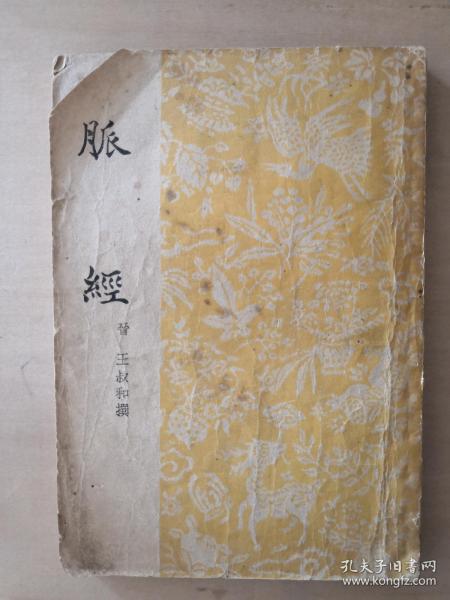 脈經
晉 王叔和撰
孔夫子旧书网
www.kongfz.com